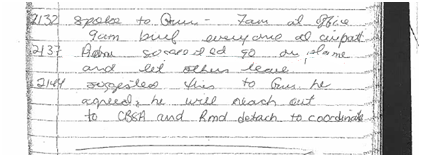 2132 spoke to Gus - 7am at office
9am brief everyone at airport
2137 Adm so can't led go on plane
and let others leave
2144 suggested this to Gus, he
agreed, he will reach out
to CBSA and Rmd detach to coordinate